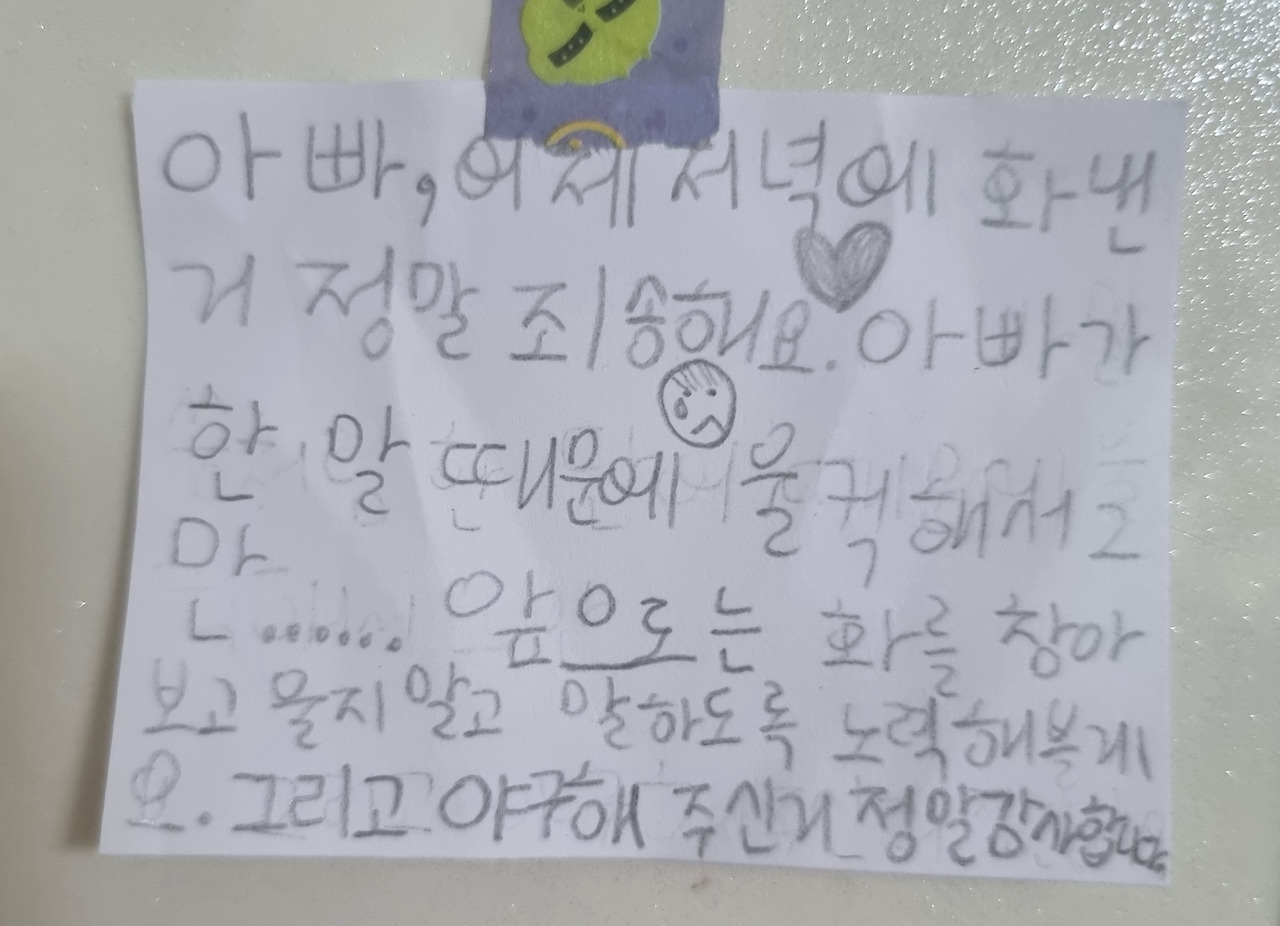 아빠, 어제 저녁에 화낸
거 정말 죄송해요. 아빠가
한 말 때문에 울컥해서 그
만....... 앞으로는 화를 참아
보고 울지 말고 말하도록 노력해볼게
요. 그리고 야구해 주신거 정말감사합니다.